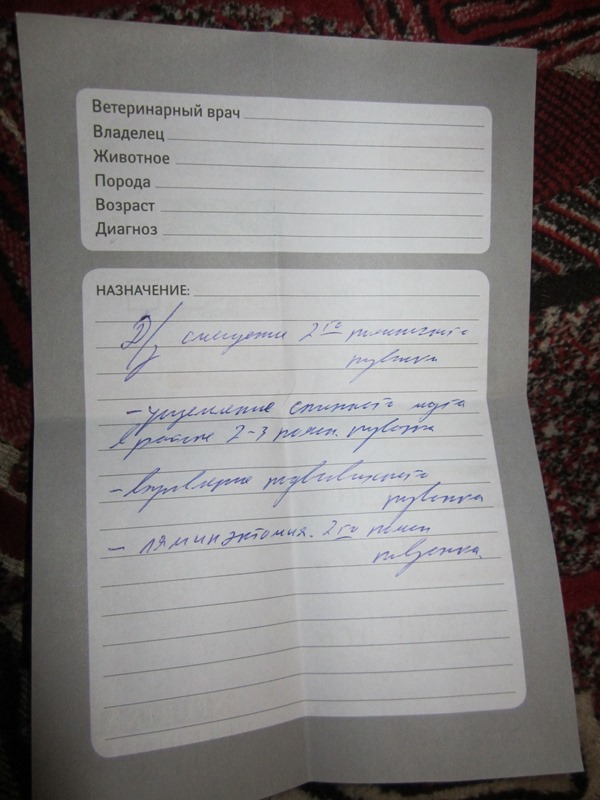 Ветеринарный врач
Владелец
Животное
Порода
Возраст
Диагноз
НАЗНАЧЕНИЕ:
D/z смещение 2го поясничного
позвонка
- ущемление спинного мозга
в районе 2-3 поясн. позвонка
- позвонка
- ляминэктомия. 2го поясн
позвонка.